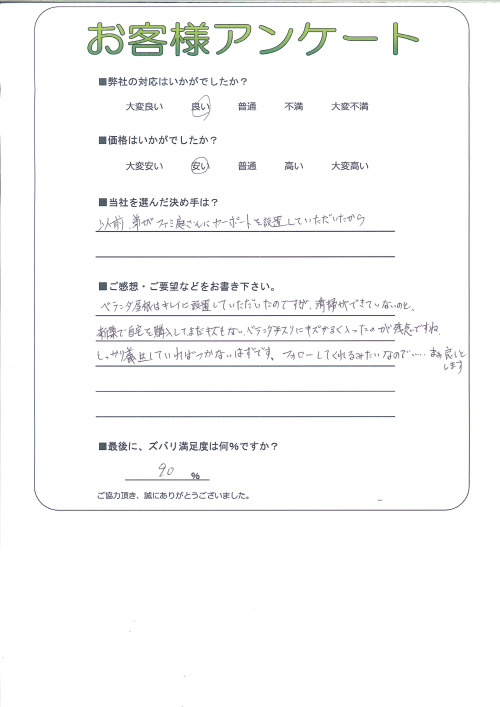 お客様アンケート
■弊社の対応はいかがでしたか？
大変良い 良い 普通 不満 大変不満
■価格はいかがでしたか？
大変安い 安い 普通 高い 大変高い
■当社を選んだ決め手は？
以前、弟がファミ庭さんにカーポートを設置していただいたから
■ご感想・ご要望などをお書き下さい。
ベランダ屋根はキレイに設置していただいたのですが、清掃ができていないのと、
新築で自宅を購入してまだキズもないベランダ手スリにキズが入ったのが残念ですね。
しっかり養生していればつかないはずです。フォローしてくれるみたいなので‥‥まあ良しと
します
■最後に、ズバリ満足度は何%ですか？
90 %
ご協力頂き、誠にありがとうございました。